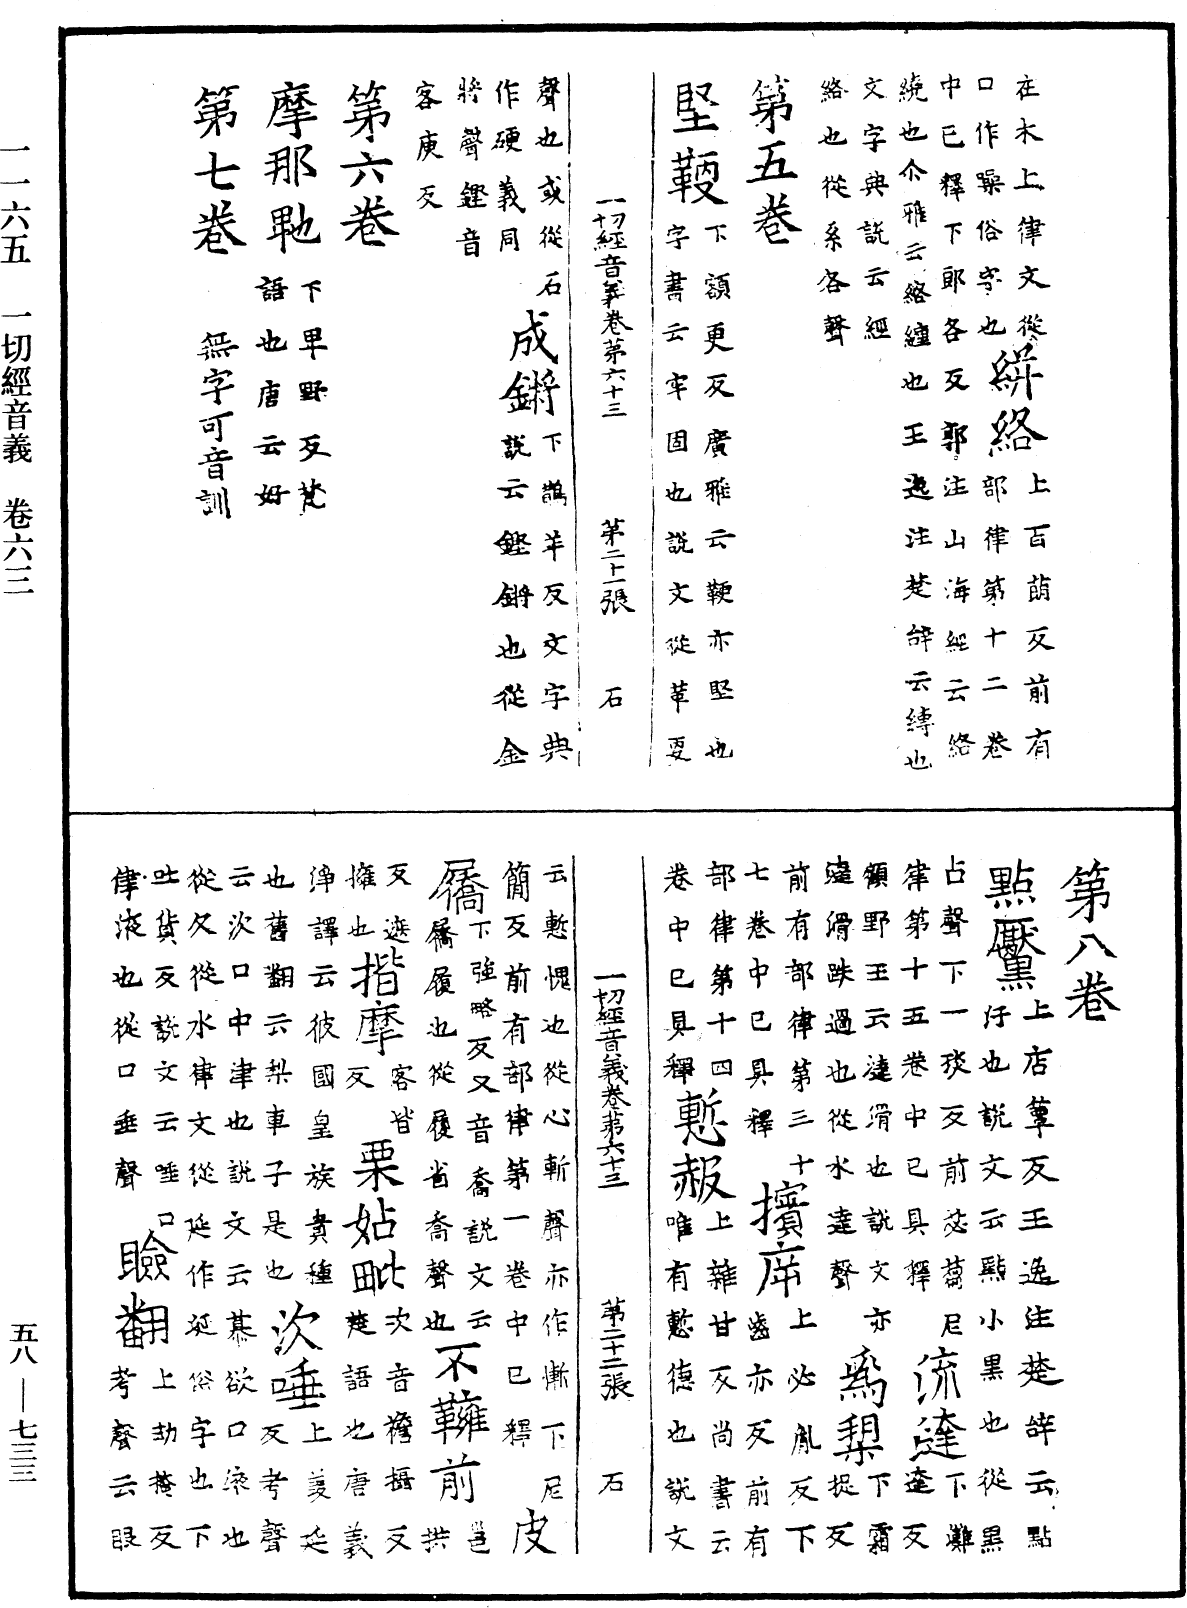 一一六五　一切經音義　卷六三
在木上律文從
口作㗱俗字也
絣絡上百萠反前有
部律第十二卷
中已釋下郎各反郭注山海經云絡
繞也尒雅云絡纏也王逸注楚辝云縛也
文字典説云經
絡也從糸各聲
第五卷
堅鞕下額更反廣雅云鞕亦堅也
字書云牢固也説文從革㪅
一切經音義卷第六十三　第二十一張　石
聲也或從石
作硬義同
成鏘下鵲羊反文字典
説云鏗鏘也從金
將聲鏗音
客庚反
第六卷
摩那𭹹下卑野反梵
語也唐云好
第七卷　無字可音訓
第八卷
點黶上店蕈反王逸注楚辝云點
㸃汙也説文云點小黒也從黒
占聲下一琰反前苾蒭尼
律第十五卷中已具釋
流澾下灘
達反
顧野王云澾滑也説文亦
澾滑跌過也從水達聲
爲㮚下霜
捉反
前有部律第三十
七卷中已具釋
擯斥上必胤反下
齒亦反前有
部律第十四
卷中已具釋
慙赧上雜甘反尚書云
唯有慙德也説文
一切經音義卷第六十三　第二十二張　石
云慙愧也從心斬聲亦作慚下尼
簡反前有部律第一卷中已釋
皮
屩下強略反又音喬説文云
屩履也從履省喬聲也
不鞾前邕
拱
反遮
擁也
揩摩客皆
反
栗姑毗次音襜攝反
楚語也唐義
淨譯云彼國皇族貴種
也舊翻云梨車子是也
㳄唾上羡延
反考聲
云㳄口中津也説文云慕欲口液也
從欠從水律文從延作涎俗字也下
吐貨反説文云唾口
律液也從口垂聲
瞼翻上劫掩反
考聲云眼
五八—七三三